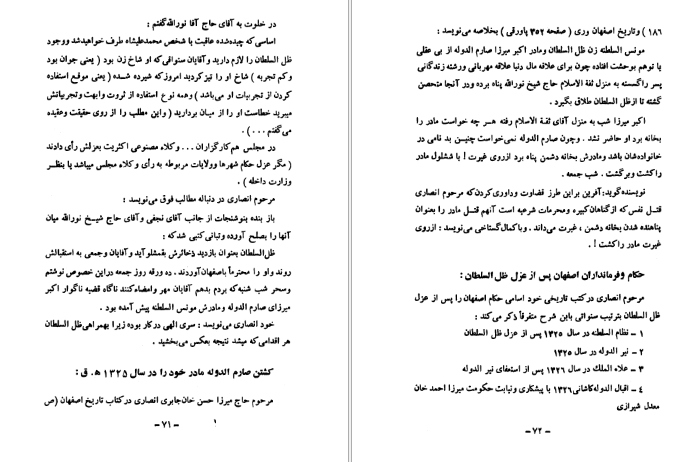 در خلوت به آقای حاج آقا نورالله گفتم :
اساسی که چیده شده عاقبت با شخص محمدعلیشاه طرف خواهید شد و وجود
ظل السلطان را لازم دارید و آقایان سنواتی که او شاخ زن بود ( یعنی جوان بود
و کم تجربه ) شاخ او را تیز کردید امروز که شیرده شده ( یعنی موقع استفاده
کردن از تجربیات او می‌باشد ) و همه نوع استفاده از ثروت و ابهت و تجربیاتش
میبرید خطاست او را از میان بردارید ( و این مطلب را از روی حقیقت و عقیده
می‌گفتم . . . ) .
در مجلس هم کارگزاران . . . وکلاء مصنوعی اکثریت بعزلش رأی دادند
( مگر عزل حکام شهرها و ولایات مربوطه به رأی وکلاء مجلس میباشد یا بنظر
وزارت داخله ) .
مرحوم انصاری در دنباله مطالب فوق می‌نویسد :
باز بنده بنوشتجات از جانب آقای نجفی و آقای حاج شیخ نورالله میان
آنها را بصلح آورده و تبانی کتبی شد که :
ظل السلطان بعنوان بازدید ذخائرش بقمشلو آید و آقایان وجمعی به استقبالش
روند و او را محترماً باصفهان آوردند . ده ورقه روز جمعه در این خصوص نوشتم
و سحر شب شنبه که بردم بدهم آقایان مهر و امضاء کنند ناگاه قضیه ناگوار اکبر
میرزای صارم الدوله و مادرش مونس السلطنه پیش آمده بود .
خود انصاری می‌نویسد : سری الهی در کار بوده زیرا بهمراهی ظل السلطان
هر اقدامی که میشد نتیجه بعکس می‌بخشید .
کشتن صارم الدوله مادر خود را در سال ۱۳۲۵ ه‍. ق :
مرحوم حاج میرزا حسن خان جابری انصاری در کتاب تاریخ اصفهان (ص
۱
– ۷۱ –
۱۸۶ ) و تاریخ اصفهان و ری ( صفحه ۳۵۲ پاورقی ) بخلاصه می‌نویسد :
مونس السلطنه زن ظل السلطان و مادر اکبر میرزا صارم الدوله از بی عقلی
یا توهم بوحشت افتاده چون برای علاقه مال دنیا علاقه مهربانی ورشته زندگانی
پسر را گسسته به منزل ثقة الاسلام حاج شیخ نورالله پناه برده و در آنجا متحصن
گشته تا از ظل السلطان طلاق بگیرد .
اکبر میرزا شب به منزل آقای ثقة الاسلام رفته هسر چه خواست مادر را
بخانه برد او حاضر نشد . و چون صارم الدوله نمی‌خواست چنیسن بد نامی در
خانواده‌شان باشد و مادرش بخانه دشمن پناه برد از روی غیرت ! با ششلول مادر
را کشت و برگشت . شب جمعه .
نویسنده گوید: آفرین براین طرز قضاوت و داوری کردن که مرحوم انصاری
قتل نفس که از گناهان کبیره و محرمات شرعیه است آنهم قتل مادر را بعنوان
پناهنده شدن بخانه دشمن ، غیرت می‌داند . و با کمال گستاخی می‌نویسد : از روی
غیرت مادر را کشت ! .
حکام و فرمانداران اصفهان پس از عزل ظل السلطان :
مرحوم انصاری در کتب تاریخی خود اسامی حکام اصفهان را پس از عزل
ظل السلطان بترتیب سنواتی باین شرح متفرقاً ذکر می‌کند :
۱ – نظام السلطنه در سال ۱۳۲۵ پس از عزل ظل السلطان
۲ – نیر الدوله در سال ۱۳۲۵
۳ – علاء الملک در سال ۱۳۲۶ پس از استعفای نیر الدوله
۴ – اقبال الدوله کاشانی ۱۳۲۶ با پیشکاری و نیابت حکومت میرزا احمد خان
معدل شیرازی
– ۷۲ –